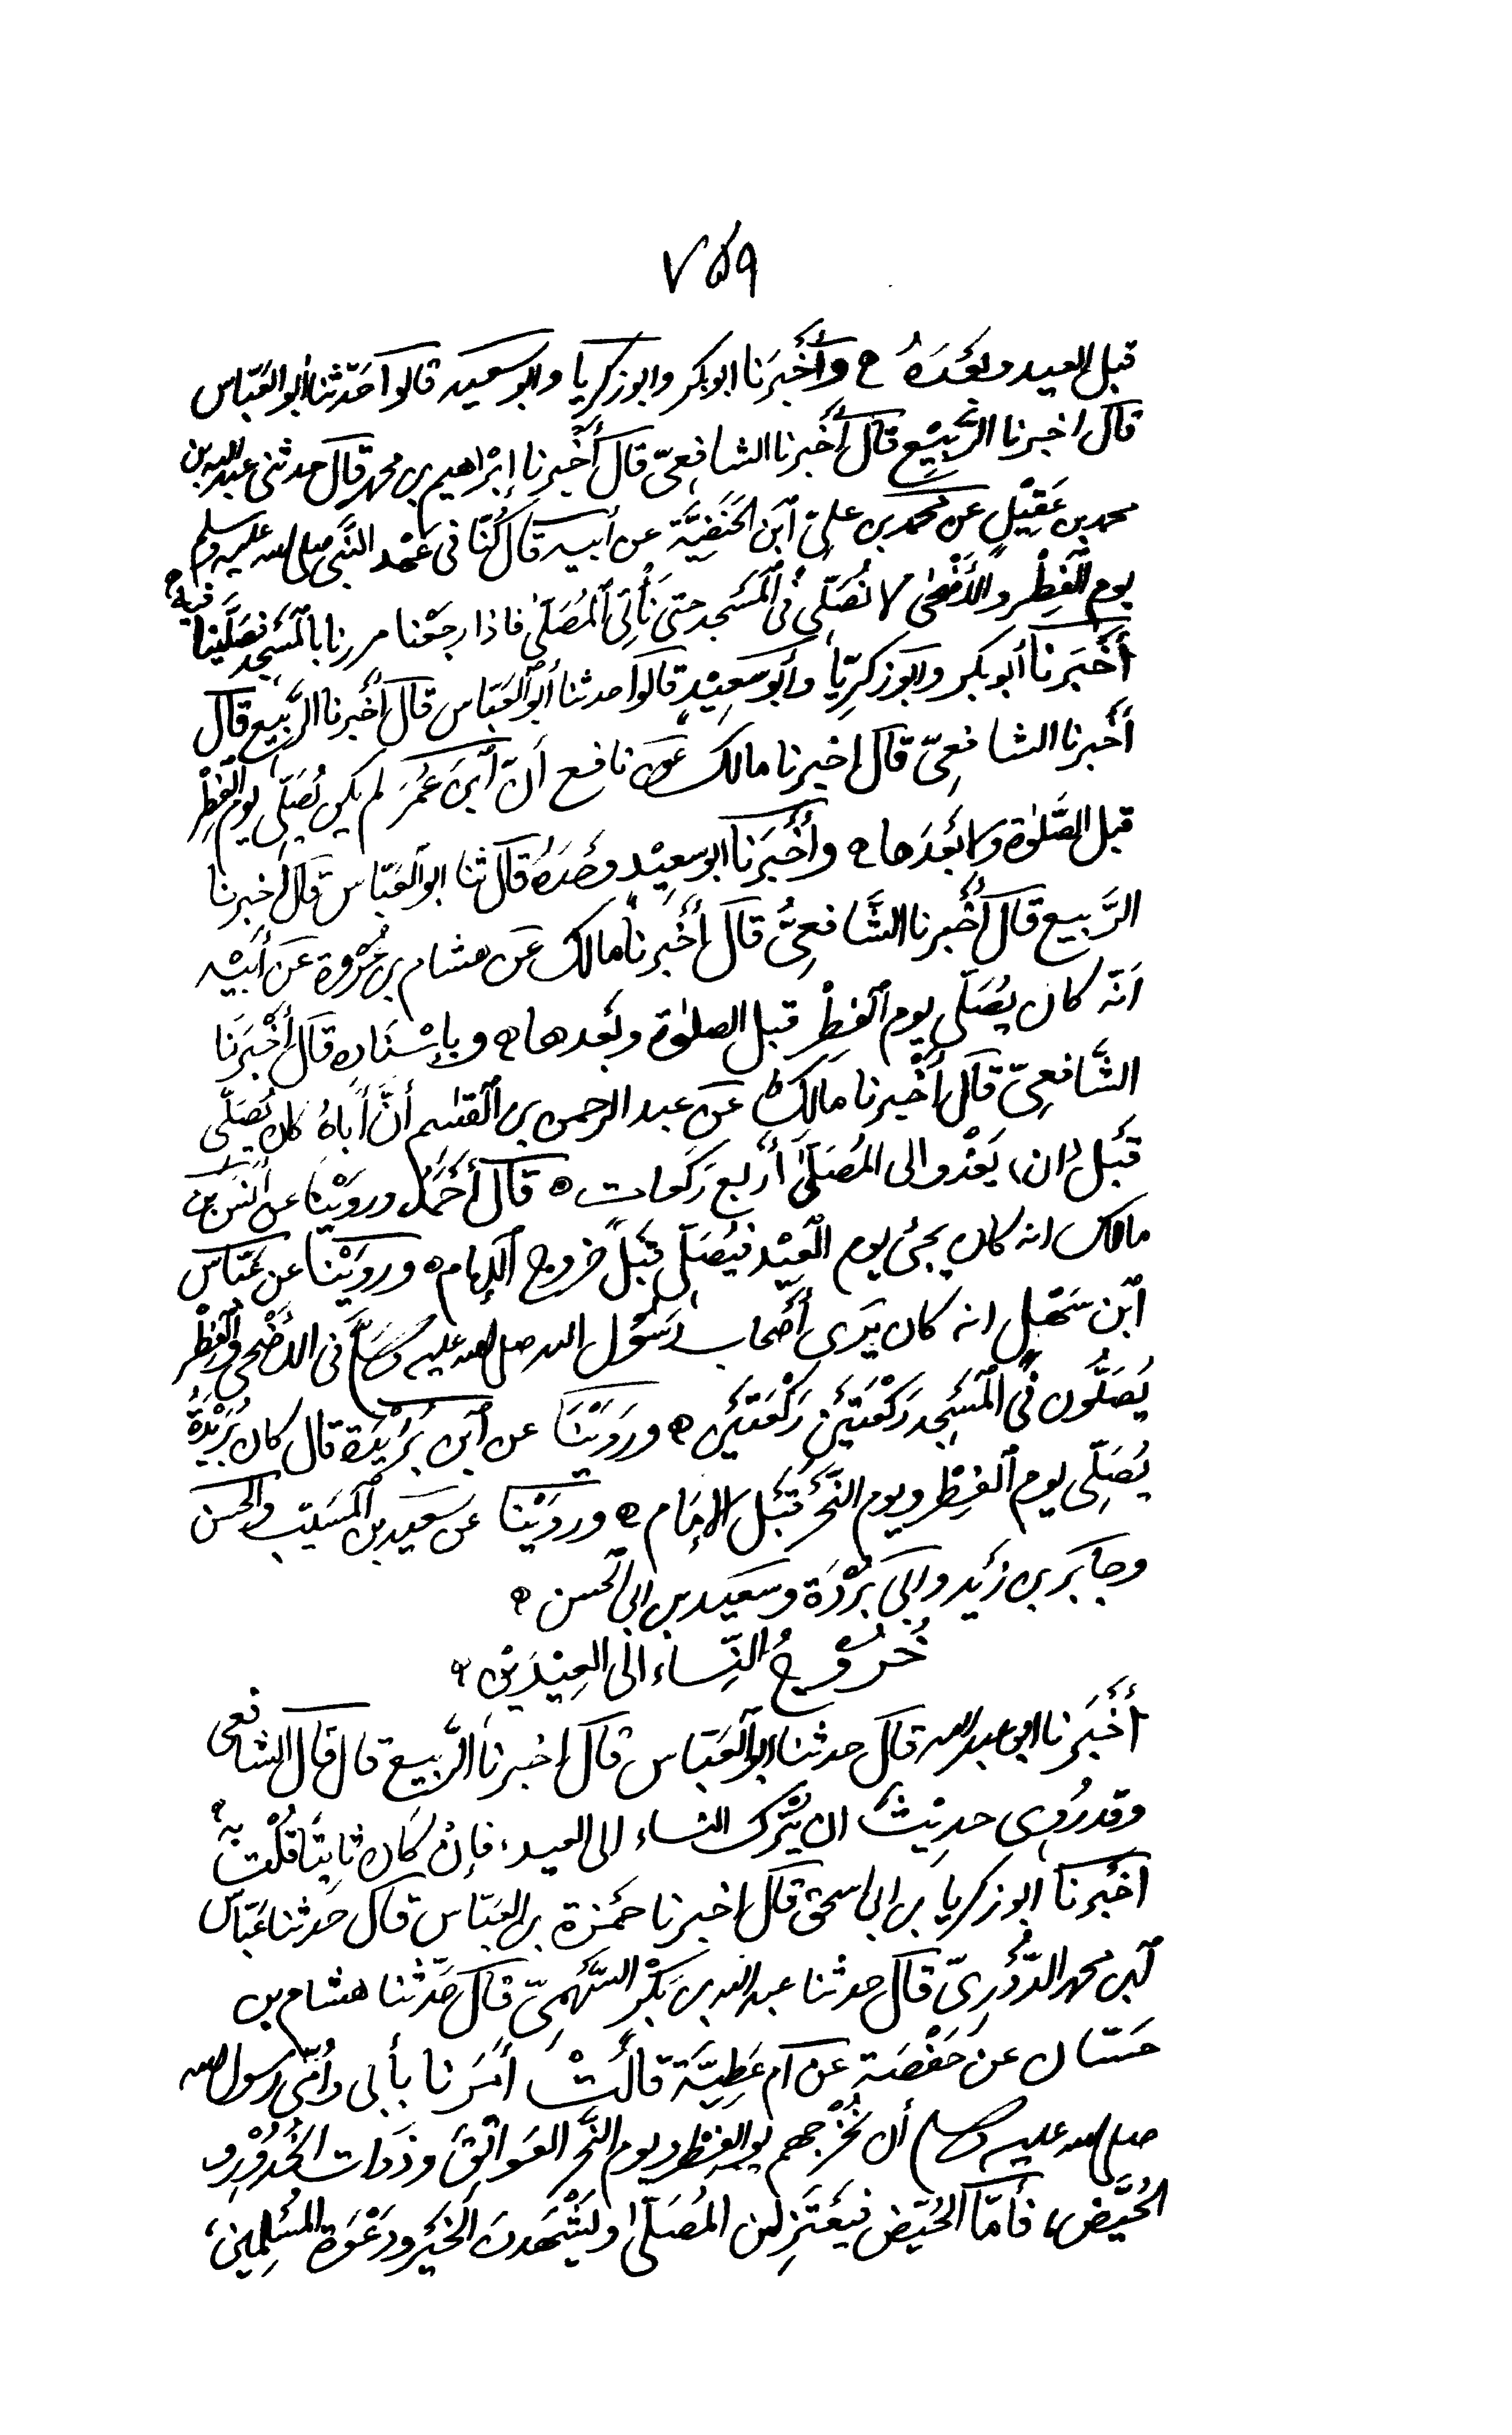 ٧٥٩
قبل العيد وبَعْدَهُ ح وأَخْبَرَنا ابو بكر وابو زكريا وابو سعيد قالوا حَدّثنا أبو العَبّاس
قال اخبرنا الرَّبِيْع قال أخبرنا الشافِعِيّ قال أخْبرنا إبْراهيم بن محمد قال حدثنى عبد الله بن
محمد بن عَقِيْلٍ عن محمد بن علىّ ٱبن الحَنَفِيَّة عن أبيه قال كُنّا فى عَهْد النّبى صلى الله عليه وسلم
يوم الفِطْر والأَضْحٰى لا نُصَلِّى فى المَسْجد حتى نَأْتِىَ المُصَلّىٰ فاذا رجَعْنا مررنا بالمَسْجد فصَلَّيْنا فيه
أَخْبَرنا أبو بكر وابو زكرِيّا وأبو سَعِيْدٍ قالوا حدثنا أبو العَبّاس قال أخبرنا الرَّبِيع قال
أَخْبرنا الشافعِىّ قال اخبرنا مالك عَن نافع أنّ ٱبنَ عُمَرَ لم يكن يُصَلِّى يوم الفِطْر
قبل الصَّلٰوة ولا بَعْدَها ه وأَخْبَرَنا ابو سعِيْد وَحْدَهُ قال ثنا ابو العَبّاس قال اخبرنا
الرَّبيع قال أَخْبرنا الشَّافعِىُّ قال أَخْبرنا مالك عَن هشام بن عُرْوة عَن أَبيْه
اَنّه كان يصُلّى يوم ٱلفِطْر قبل الصلٰوة وبَعْدها ه وبإسْنَاده قال أَخْبَرنَا
الشَّافعِىّ قال أَخْبرنا مَالِكٌ عَن عبد الرحمن بن القٰسم أنَّ أَباهُ كان يُصَلّى
قَبْل ان يَغْدو الى المُصَلّىٰ أَربع رَكَعات ه قال أَحْمَدُ وروَيْنا عن أَنَس بن
مالك انه كان يجئ يوم العِيْد فيُصَلّى قَبْلَ خروج الإمام ه وروَيْنا عن عَبّاس
ٱبن سَهْل انه كان يَرى أَصْحاب رَسُول الله صلى الله عليه وسلم فى الأضْحى والفِطْر
يُصَلُّون فى المَسْجِد رَكْعَتَيْن رَكْعَتَيْن ه ورَوَيْنَا عن ٱبن بُرَيْدة قال كان بُرَيْدَةُ
يُصَلِّى يوم ٱلفِطْر ويوم النَّحْر قَبْل الإمَام ه وروَيْنا عن سَعيد بن المُسَيّب والحسن
وجابَر بن زَيْد وابى بُرْدَة وسَعيد بن ابى الحسن ه
خُرُوْجُ النِّساء الى العِيْدَيْن ه
أَخْبَرنا ابو عبد الله قال حدثنا ابو العَبّاس قال اخبرنا الرَّبيع قال قال الشافعى
وقد رُوِى حدِيْثٌ ان يُتْرك النساء الى العيد، فإنْ كَان ثابتًا قُلْتُ بهِ ه
اخْبرنَا ابو زكريا بن ابى اسحٰق قال اخبرنا حَمْزة بن العَبّاس قال حَدثنا عَبّاس
ٱبن محمد الدُّوْرِىّ قال حدثنا عبد الله بن بَكْر السَّهْمِىّ قال حَدّثنا هشام بن
حَسّان عن حَفْصَة عن ام عَطِيَّة قالَتْ أَمَرنا بأبى وأُمّى رسول الله
صلى الله عليه وسلم أن نُخْرجهم يوم الفِطْر ويوم النَّحْر العَواتِقَ وذَوات الخُدُوْرِ و
الحُيَّض، فأمّا الحُيّض فيَعْتَزِلن المُصَلّىٰ وليَشْهَدنَ الخَيْر ودَعْوَة المُسْلمين،